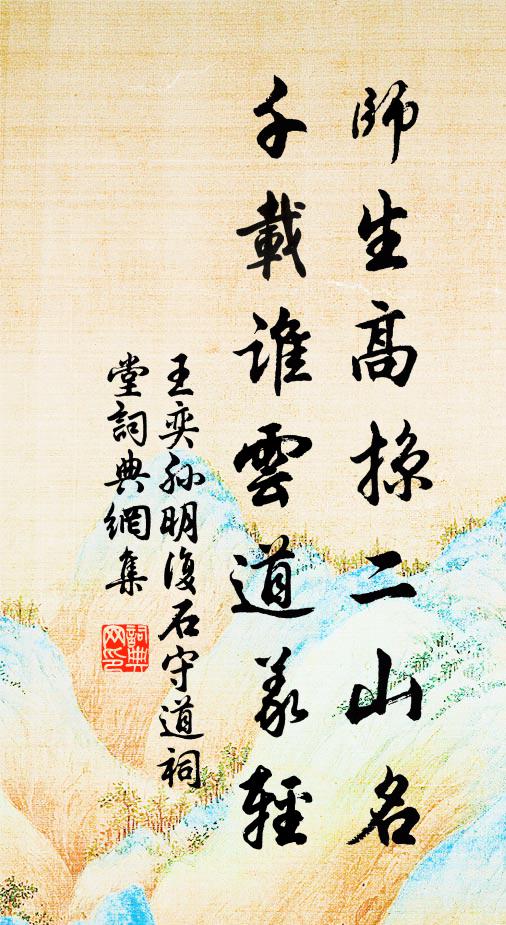 師生高掠二山名
千載誰雲道義輕
王奕孫明復石守道祠
堂詞典網集
詞典網印